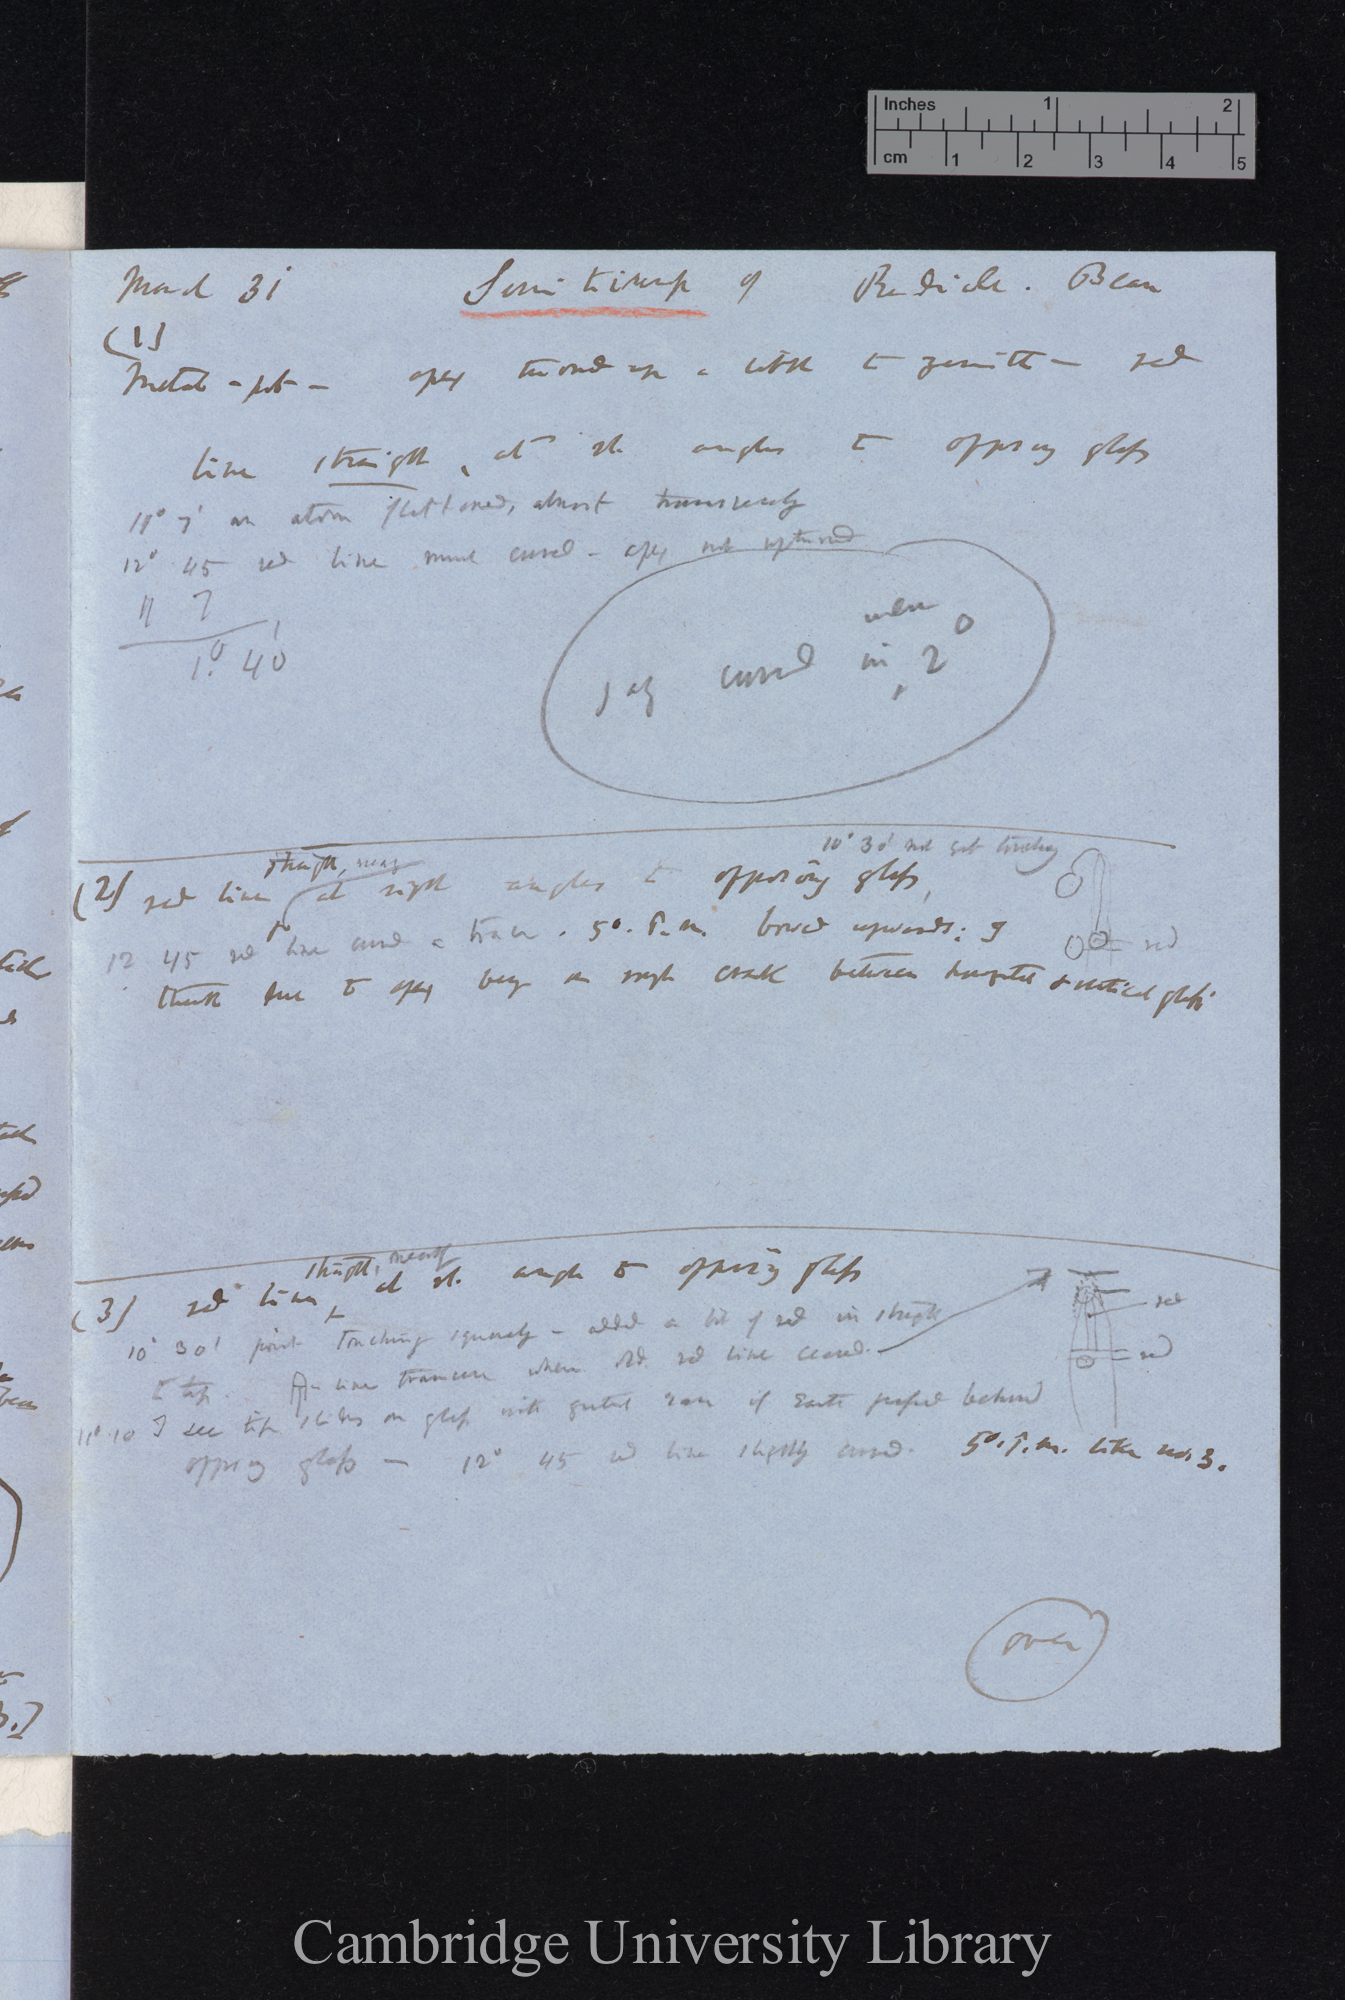 Inches 1 2
cm 1 2 3 4 5
March 31 Sensitiveness of Radicle. Bean
(1)
Metal-pot — apex turned up a little to zenith — red
line straight, at rt. angles to opposing glass
11° 7' an atom flattened, almost transversely
12° 45 red line much curved — apex not upturned
11 7
1.° 40'
say curved when in 2°
10° 30' not yet touching
straight, nearly
(2) red line at right angles to opposing glass,
12 45 red line curved a trace. 5°. P.m. bowed upwards; I
red
think due to apex being in rough crack between horizontal & vertical glass
straight, nearly
(3) red line, at rt. angle to opposing glass
10° 30' point touching squarely — added a bit of red in straight
red
to tip. A line transverse where old red line ceased.
red
11° 10 I see tip slides on glass with greatest ease if earth pushed behind
opposing glass — 12° 45 red line slightly curved. 5°. P.m. like no. 3.
over
Cambridge University Library